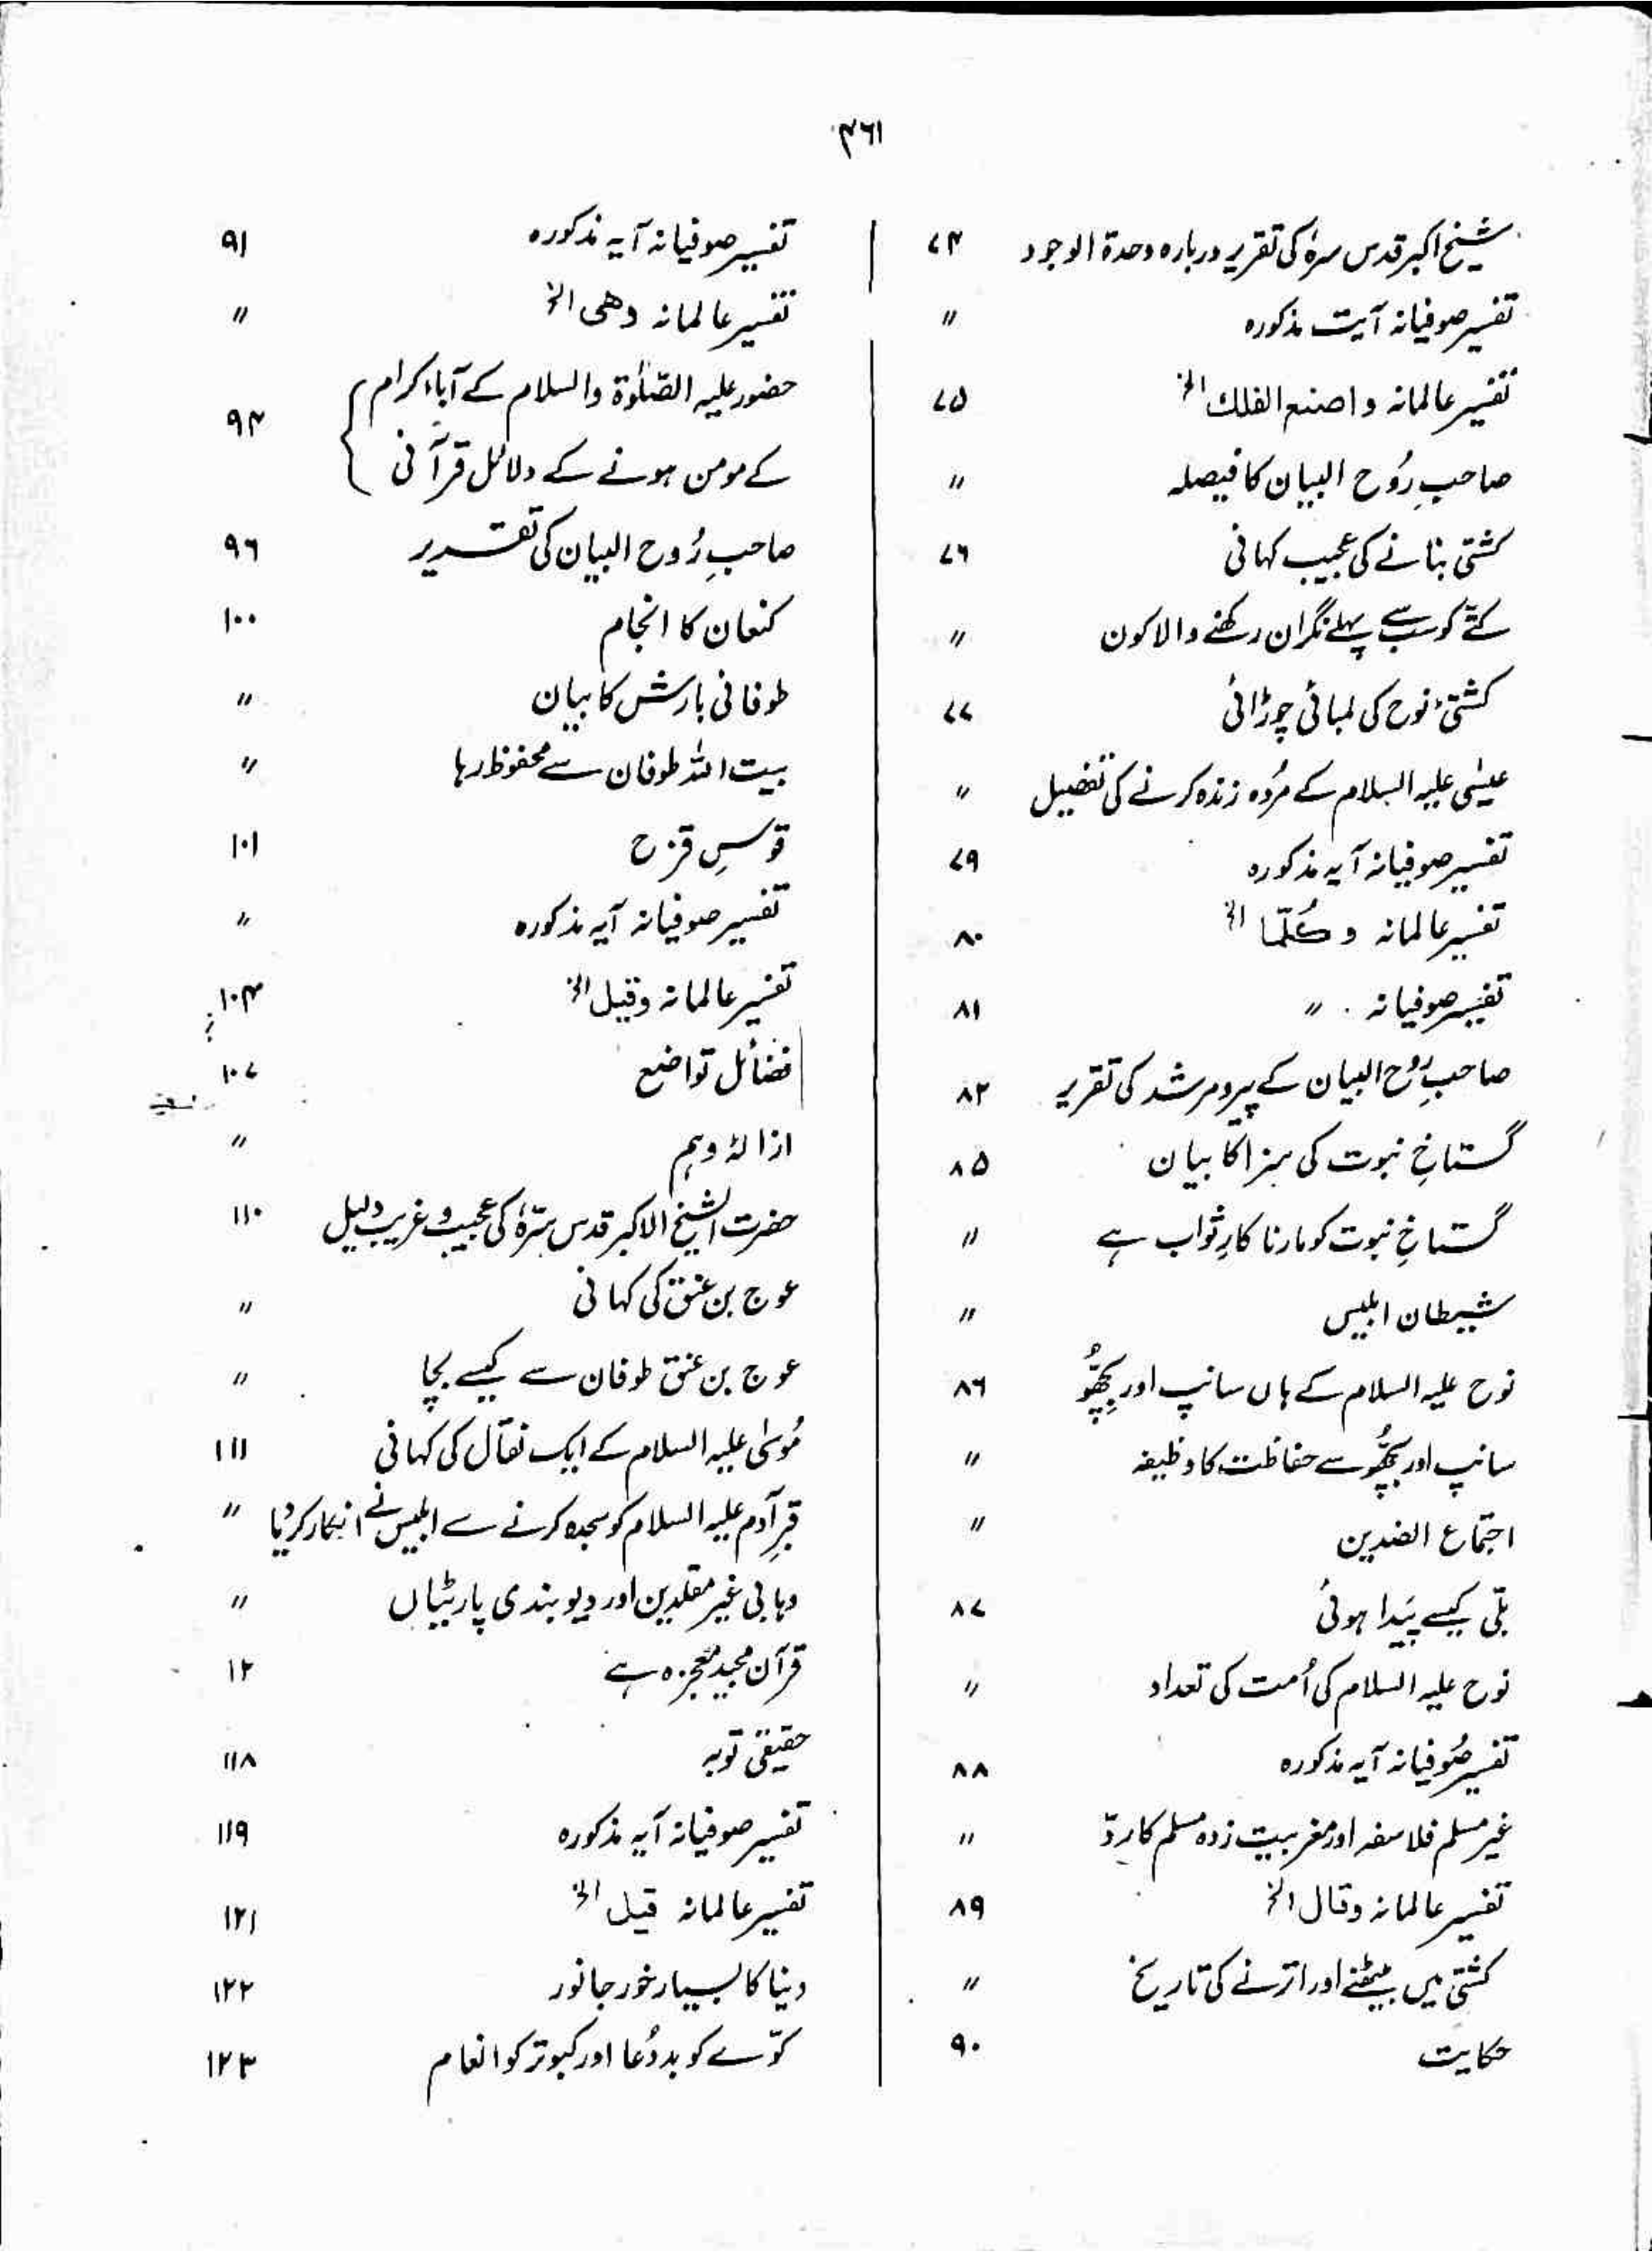 ۳۶۱
شیخ اکبر قدس سرہٗ کی تقریر دربارہ وحدۃ الوجود ۷۴
تفسیر صوفیانہ آیت مذکورہ "
تفسیر عالمانہ و اصنع الفلک الخ ۷۵
صاحبِ رُوح البیان کا فیصلہ "
کشتی بنانے کی عجیب کہانی ۷۶
کتے کو سب سے پہلے نگران رکھنے والا کون "
کشتیٔ نوح کی لمبائی چوڑائی ۷۷
عیسٰی علیہ السلام کے مُردہ زندہ کرنے کی تفصیل "
تفسیر صوفیانہ آیہ مذکورہ ۷۹
تفسیر عالمانہ و کُلّما الخ ۸۰
تفسیر صوفیانہ " ۸۱
صاحبِ رُوح البیان کے پیر و مرشد کی تقریر ۸۲
گستاخِ نبوت کی سزا کا بیان ۸۵
گستاخِ نبوت کو مارنا کارِ ثواب ہے "
شیطان ابلیس "
نوح علیہ السلام کے ہاں سانپ اور بِچھُّو ۸۶
سانپ اور بچھُّو سے حفاظت کا وظیفہ "
اجتماع الضدین "
بلّی کیسے پَیدا ہوئی ۸۷
نوح علیہ السلام کی اُمت کی تعداد "
تفسیر صُوفیانہ آیہ مذکورہ ۸۸
غیر مسلم فلاسفہ اور مغربیت زدہ مسلم کا ردّ "
تفسیر عالمانہ وقال الخ ۸۹
کشتی میں بیٹھنے اور اترنے کی تاریخ "
حکایت ۹۰
تفسیر صوفیانہ آیہ مذکورہ ۹۱
تفسیر عالمانہ وھی الخ "
حضور علیہ الصّلوٰۃ والسلام کے آباء کرام
کے مومن ہونے کے دلائل قرآنی ۹۴
صاحبِ رُوح البیان کی تقریر ۹۶
کنعان کا انجام ۱۰۰
طوفانی بارش کا بیان "
بیت اللہ طوفان سے محفوظ رہا "
قوسِ قزح ۱۰۱
تفسیر صوفیانہ آیہ مذکورہ "
تفسیر عالمانہ وقیل الخ ۱۰۴
فضائل تواضع ۱۰۷
ازالۂ وہم "
حضرت الشیخ الاکبر قدس سرّہٗ کی عجیب و غریب دلیل ۱۱۰
عوج بن عنق کی کہانی "
عوج بن عنق طوفان سے کیسے بچا "
مُوسٰی علیہ السلام کے ایک نقّال کی کہانی ۱۱۱
قبرِ آدم علیہ السلام کو سجدہ کرنے سے ابلیس نے انکار کر دیا "
وہابی غیر مقلدین اور دیوبندی پارٹیاں "
قرآن مجید معجزہ ہے ۱۲
حقیقی توبہ ۱۱۸
تفسیر صوفیانہ آیہ مذکورہ ۱۱۹
تفسیر عالمانہ قیل الخ ۱۲۱
دنیا کا بسیار خور جانور ۱۲۲
کوّے کو بد دُعا اور کبوتر کو انعام ۱۲۳